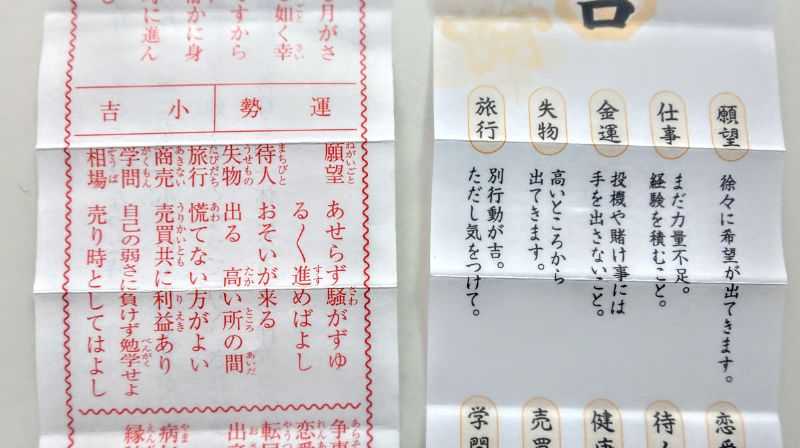 月がさ
如く幸
すから
かに身
に進ん
運勢
小吉
願望 あせらず騒がずゆ
る〱進めばよし
待人 おそいが来る
失物 出る 高い所の間
旅行 慌てない方がよい
商売 売買共に利益あり
学問 自己の弱さに負けず勉学せよ
相場 売り時としてはよし
争事
恋愛
転
出
病
縁
吉
願望 徐々に希望が出てきます。
仕事 まだ力量不足。
経験を積むこと。
金運 投機や賭け事には
手を出さないこと。
失物 高いところから
出てきます。
旅行 別行動が吉。
ただし気をつけて。
恋
待
健
売
学